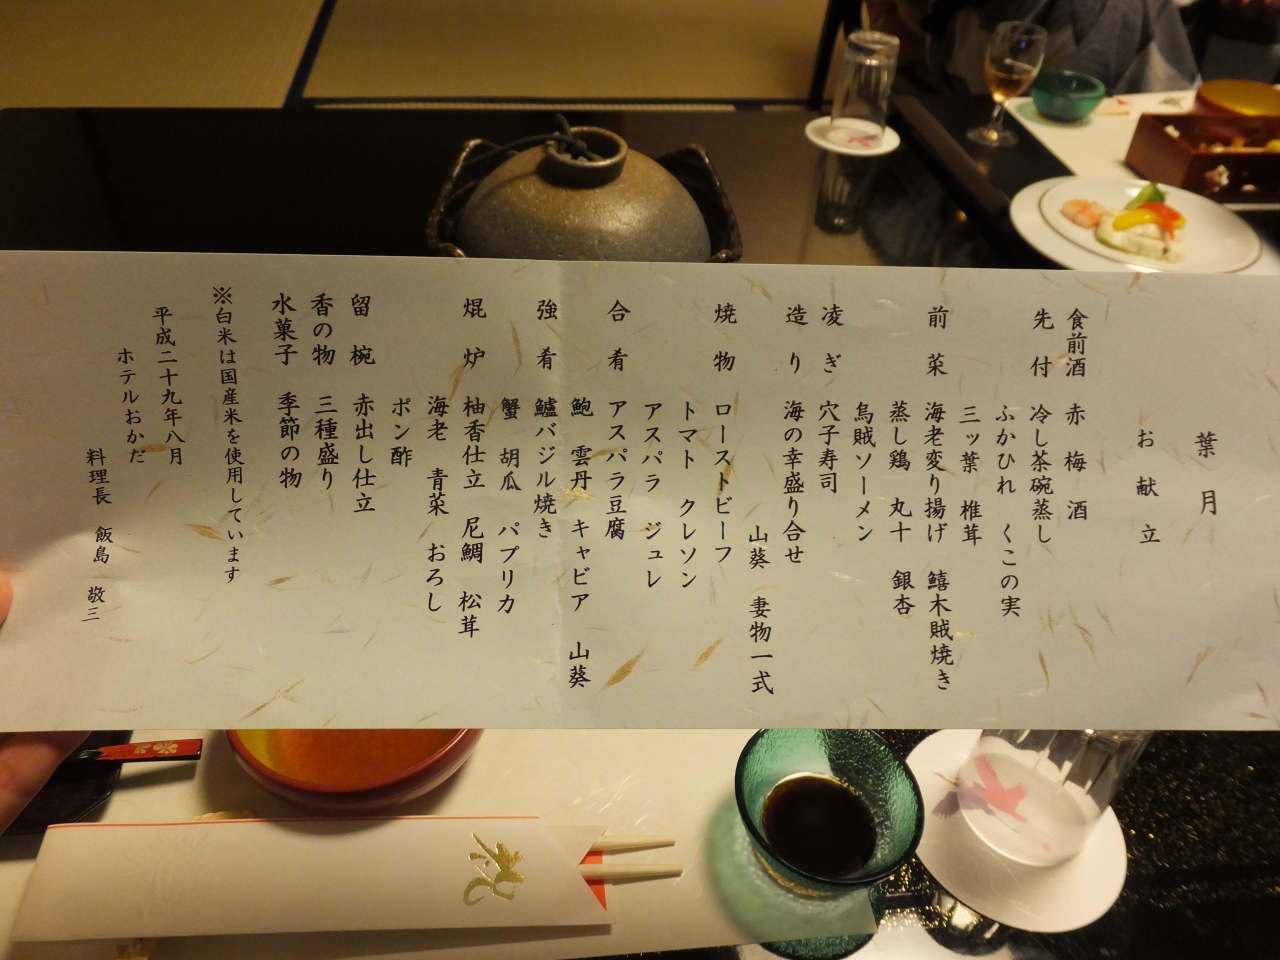 葉月
お献立
食前酒 赤梅酒
先付 冷し茶碗蒸し
ふかひれ くこの実
三ッ葉 椎茸
前菜 海老変り揚げ 鱚木賊焼き
蒸し鶏 丸十 銀杏
烏賊ソーメン
凌ぎ 穴子寿司
造り 海の幸盛り合せ
山葵 妻物一式
焼物 ローストビーフ
トマト クレソン
アスパラ ジュレ
合肴 アスパラ豆腐
鮑 雲丹 キャビア 山葵
強肴 鱸バジル焼き
蟹 胡瓜 パプリカ
焜炉 柚香仕立 尼鯛 松茸
海老 青菜 おろし
ポン酢
留椀 赤出し仕立
香の物 三種盛り
水菓子 季節の物
※白米は国産米を使用しています
平成二十九年八月
ホテルおかだ
料理長 飯島 敬三
祝